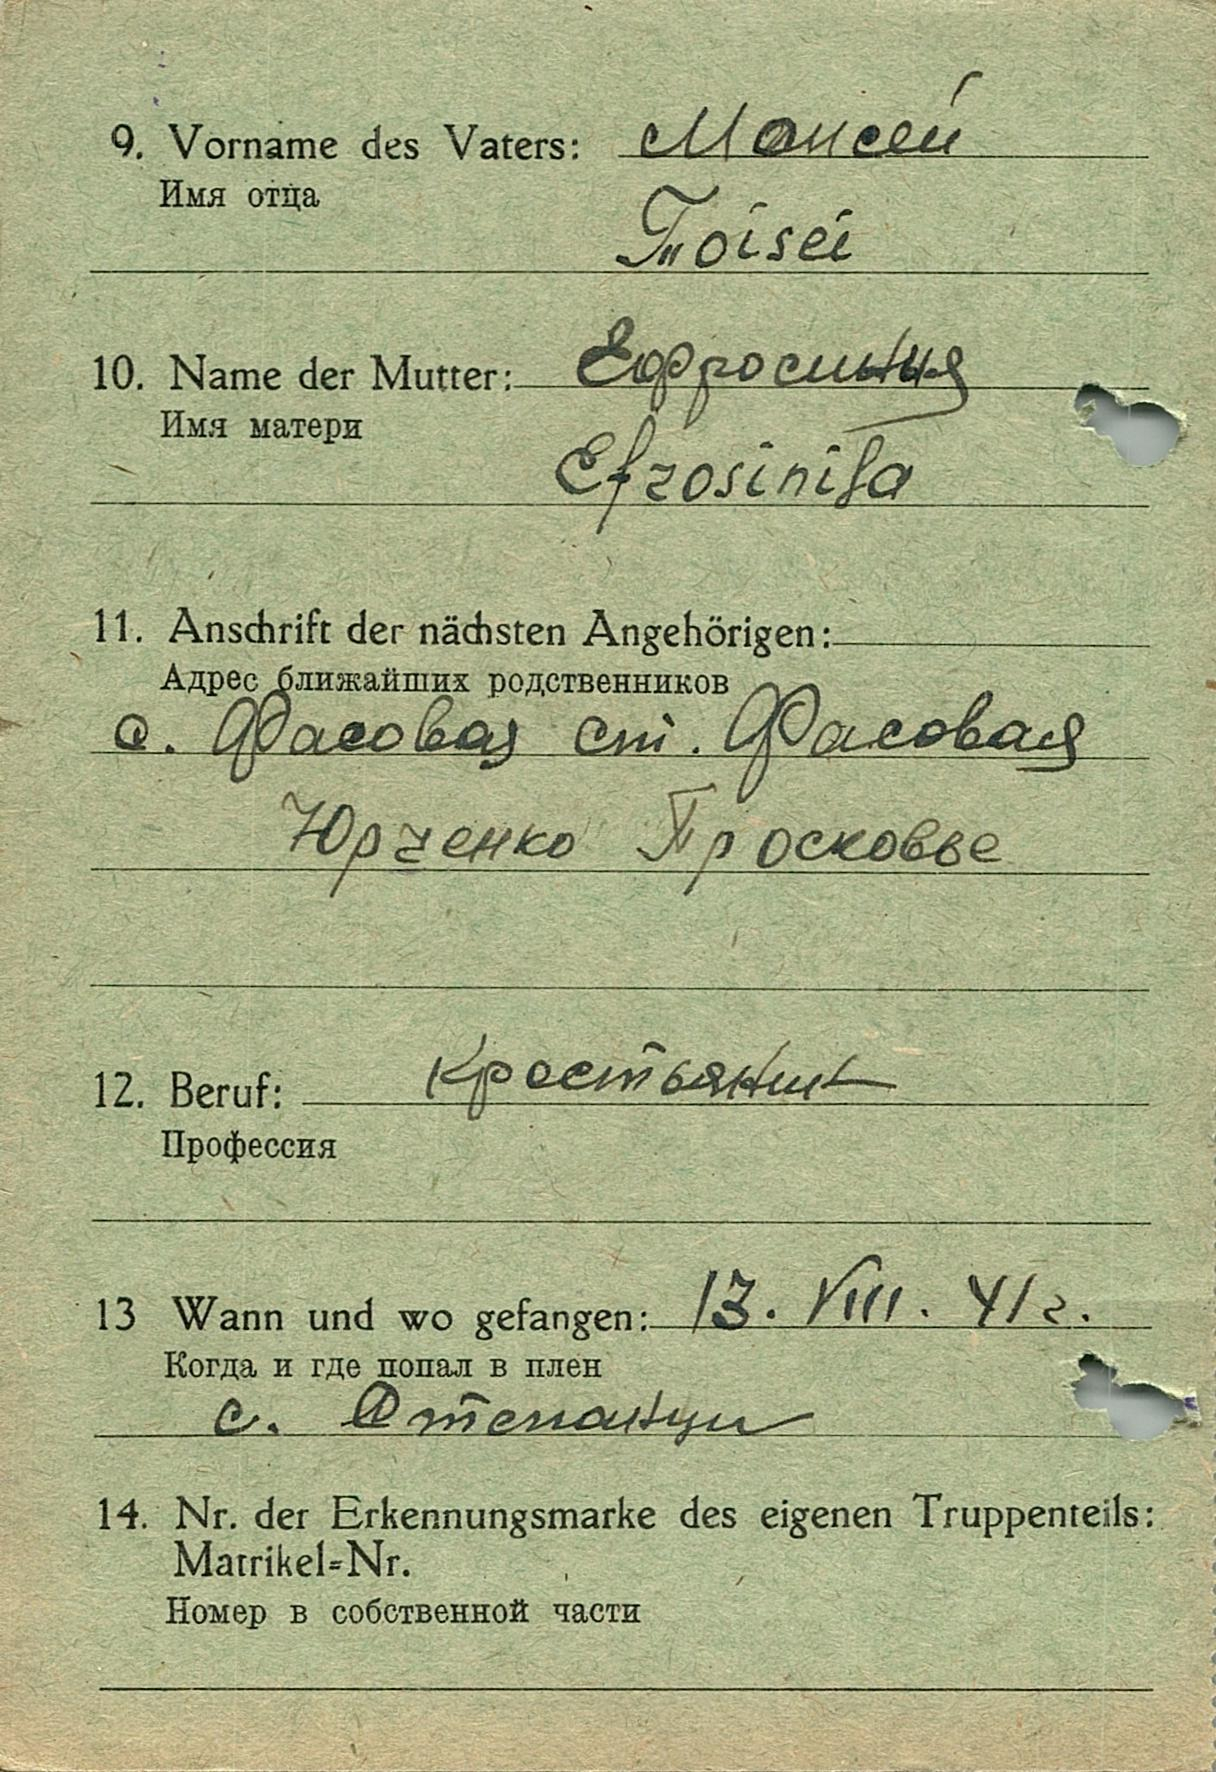 9. Vorname des Vaters: Моисей
Имя отца
Toiséi
10. Name der Mutter: Ефросиния
Имя матери
Efrosinija
11. Anschrift der nächsten Angehörigen:
Адрес ближайших родственников
с. Фасовая ст. Фасовая
Юрченко Просковье
12. Beruf: крестьянин
Профессия
13 Wann und wo gefangen: 13. VIII. 41 г.
Когда и где попал в плен
с. Степанци
14. Nr. der Erkennungsmarke des eigenen Truppenteils:
Matrikel-Nr.
Номер в собственной части